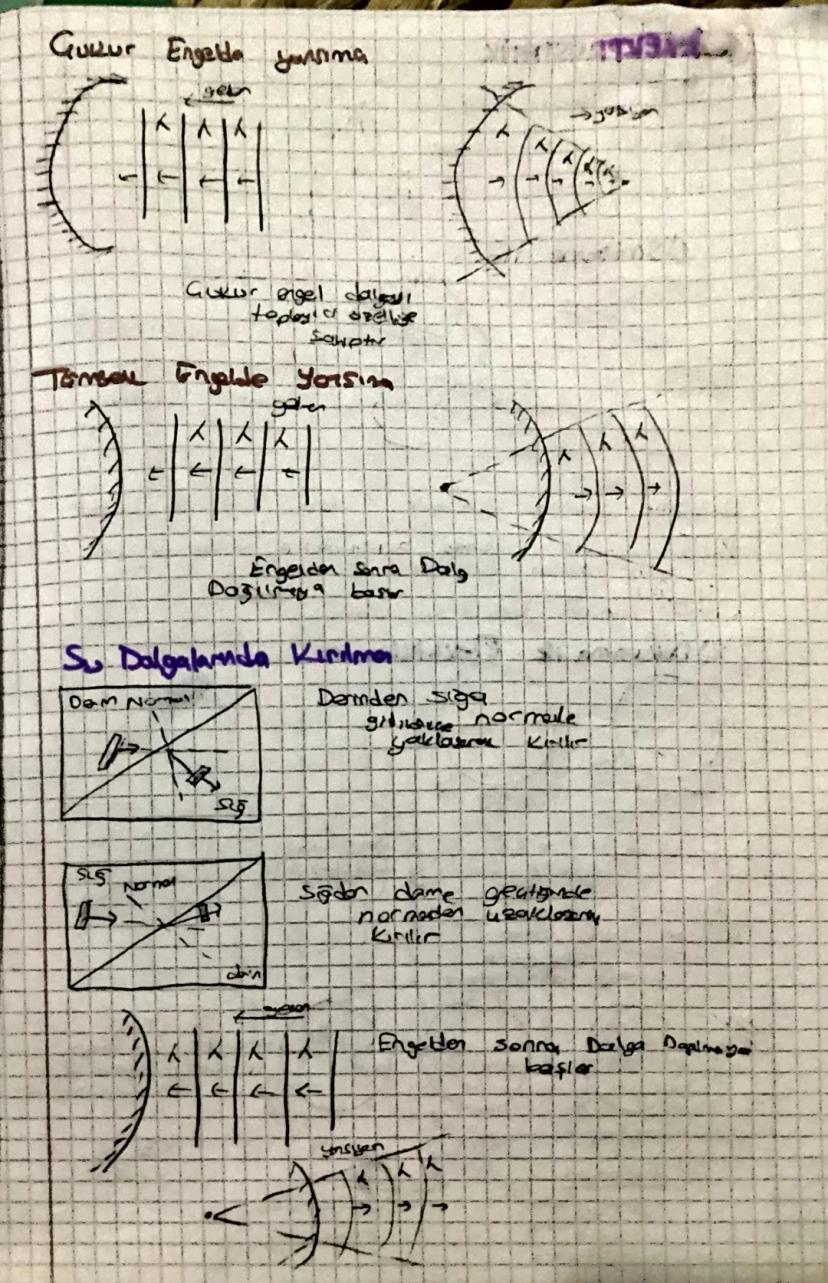 Çukur Engelde yansıma
gelen
λ λ λ
→ yansıyan
λ λ λ λ λ
Çukur engel dalgayı
toplayıcı özelliğe
sahiptir
Tümsek Engelde Yansıma
gelen
λ λ λ
λ λ λ
Engelden sonra Dalg
Dağılmaya başlar
Su Dalgalarında Kırılma
Derin Normal
Sığ
Derinden sığa
gidildikçe normale
yaklaşarak kırılır
Sığ
Normal
derin
Sığdan derine geçtiğinde
normalden uzaklaşarak
kırılır
λ λ λ λ
Engelden sonra Dalga Dağılmaya
başlar
yansıyan
λ λ λ